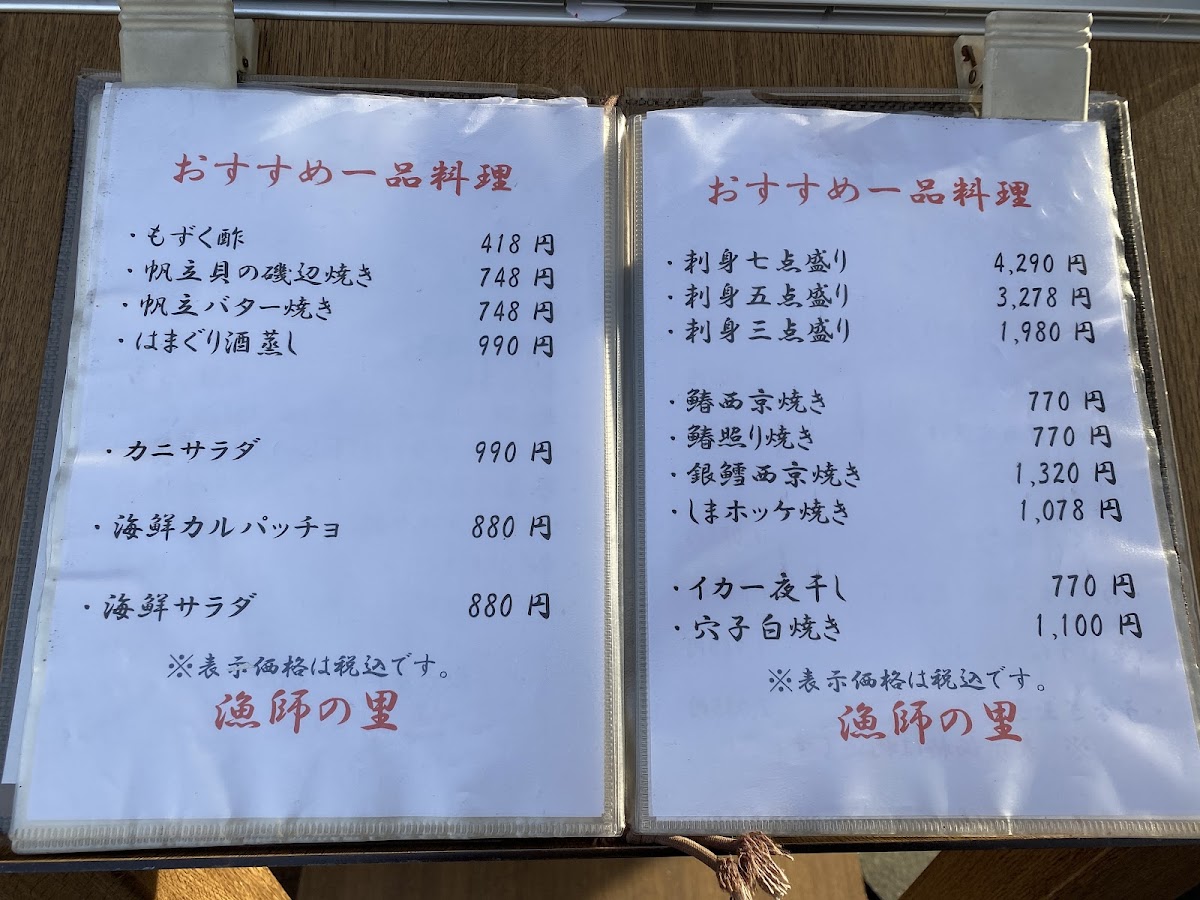 おすすめ一品料理
・もずく酢 418 円
・帆立貝の磯辺焼き 748 円
・帆立バター焼き 748 円
・はまぐり酒蒸し 990 円
・カニサラダ 990 円
・海鮮カルパッチョ 880 円
・海鮮サラダ 880 円
※表示価格は税込です。
漁師の里
おすすめ一品料理
・刺身七点盛り 4,290 円
・刺身五点盛り 3,278 円
・刺身三点盛り 1,980 円
・鰆西京焼き 770 円
・鰆照り焼き 770 円
・銀鱈西京焼き 1,320 円
・しまホッケ焼き 1,078 円
・イカ一夜干し 770 円
・穴子白焼き 1,100 円
※表示価格は税込です。
漁師の里